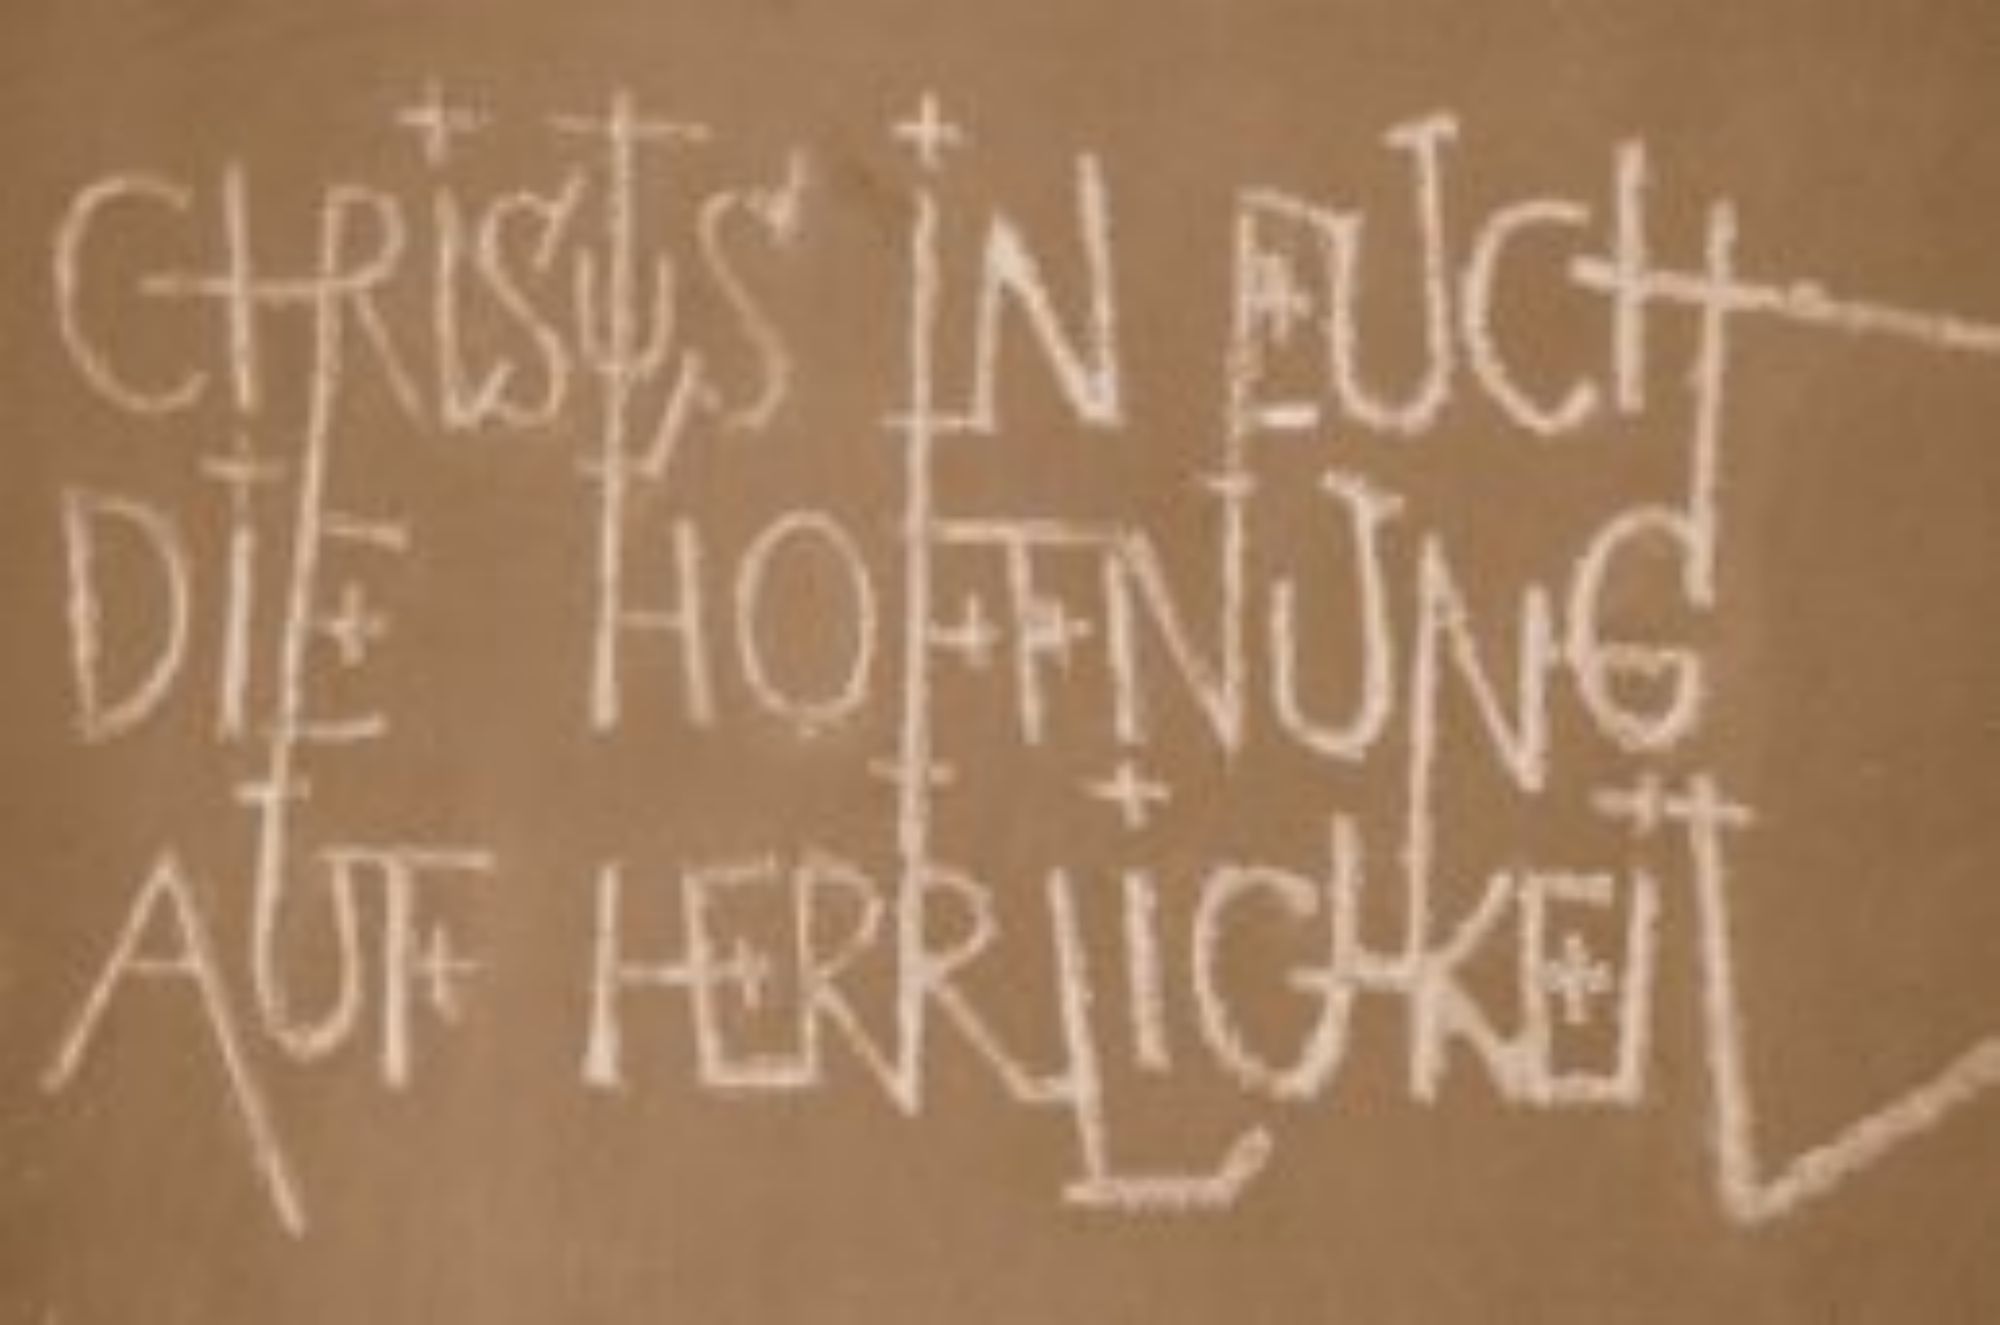 CHRiSTUS iN EUCH
DiE HOFFNUNG
AUF HERRLiCHKEiT